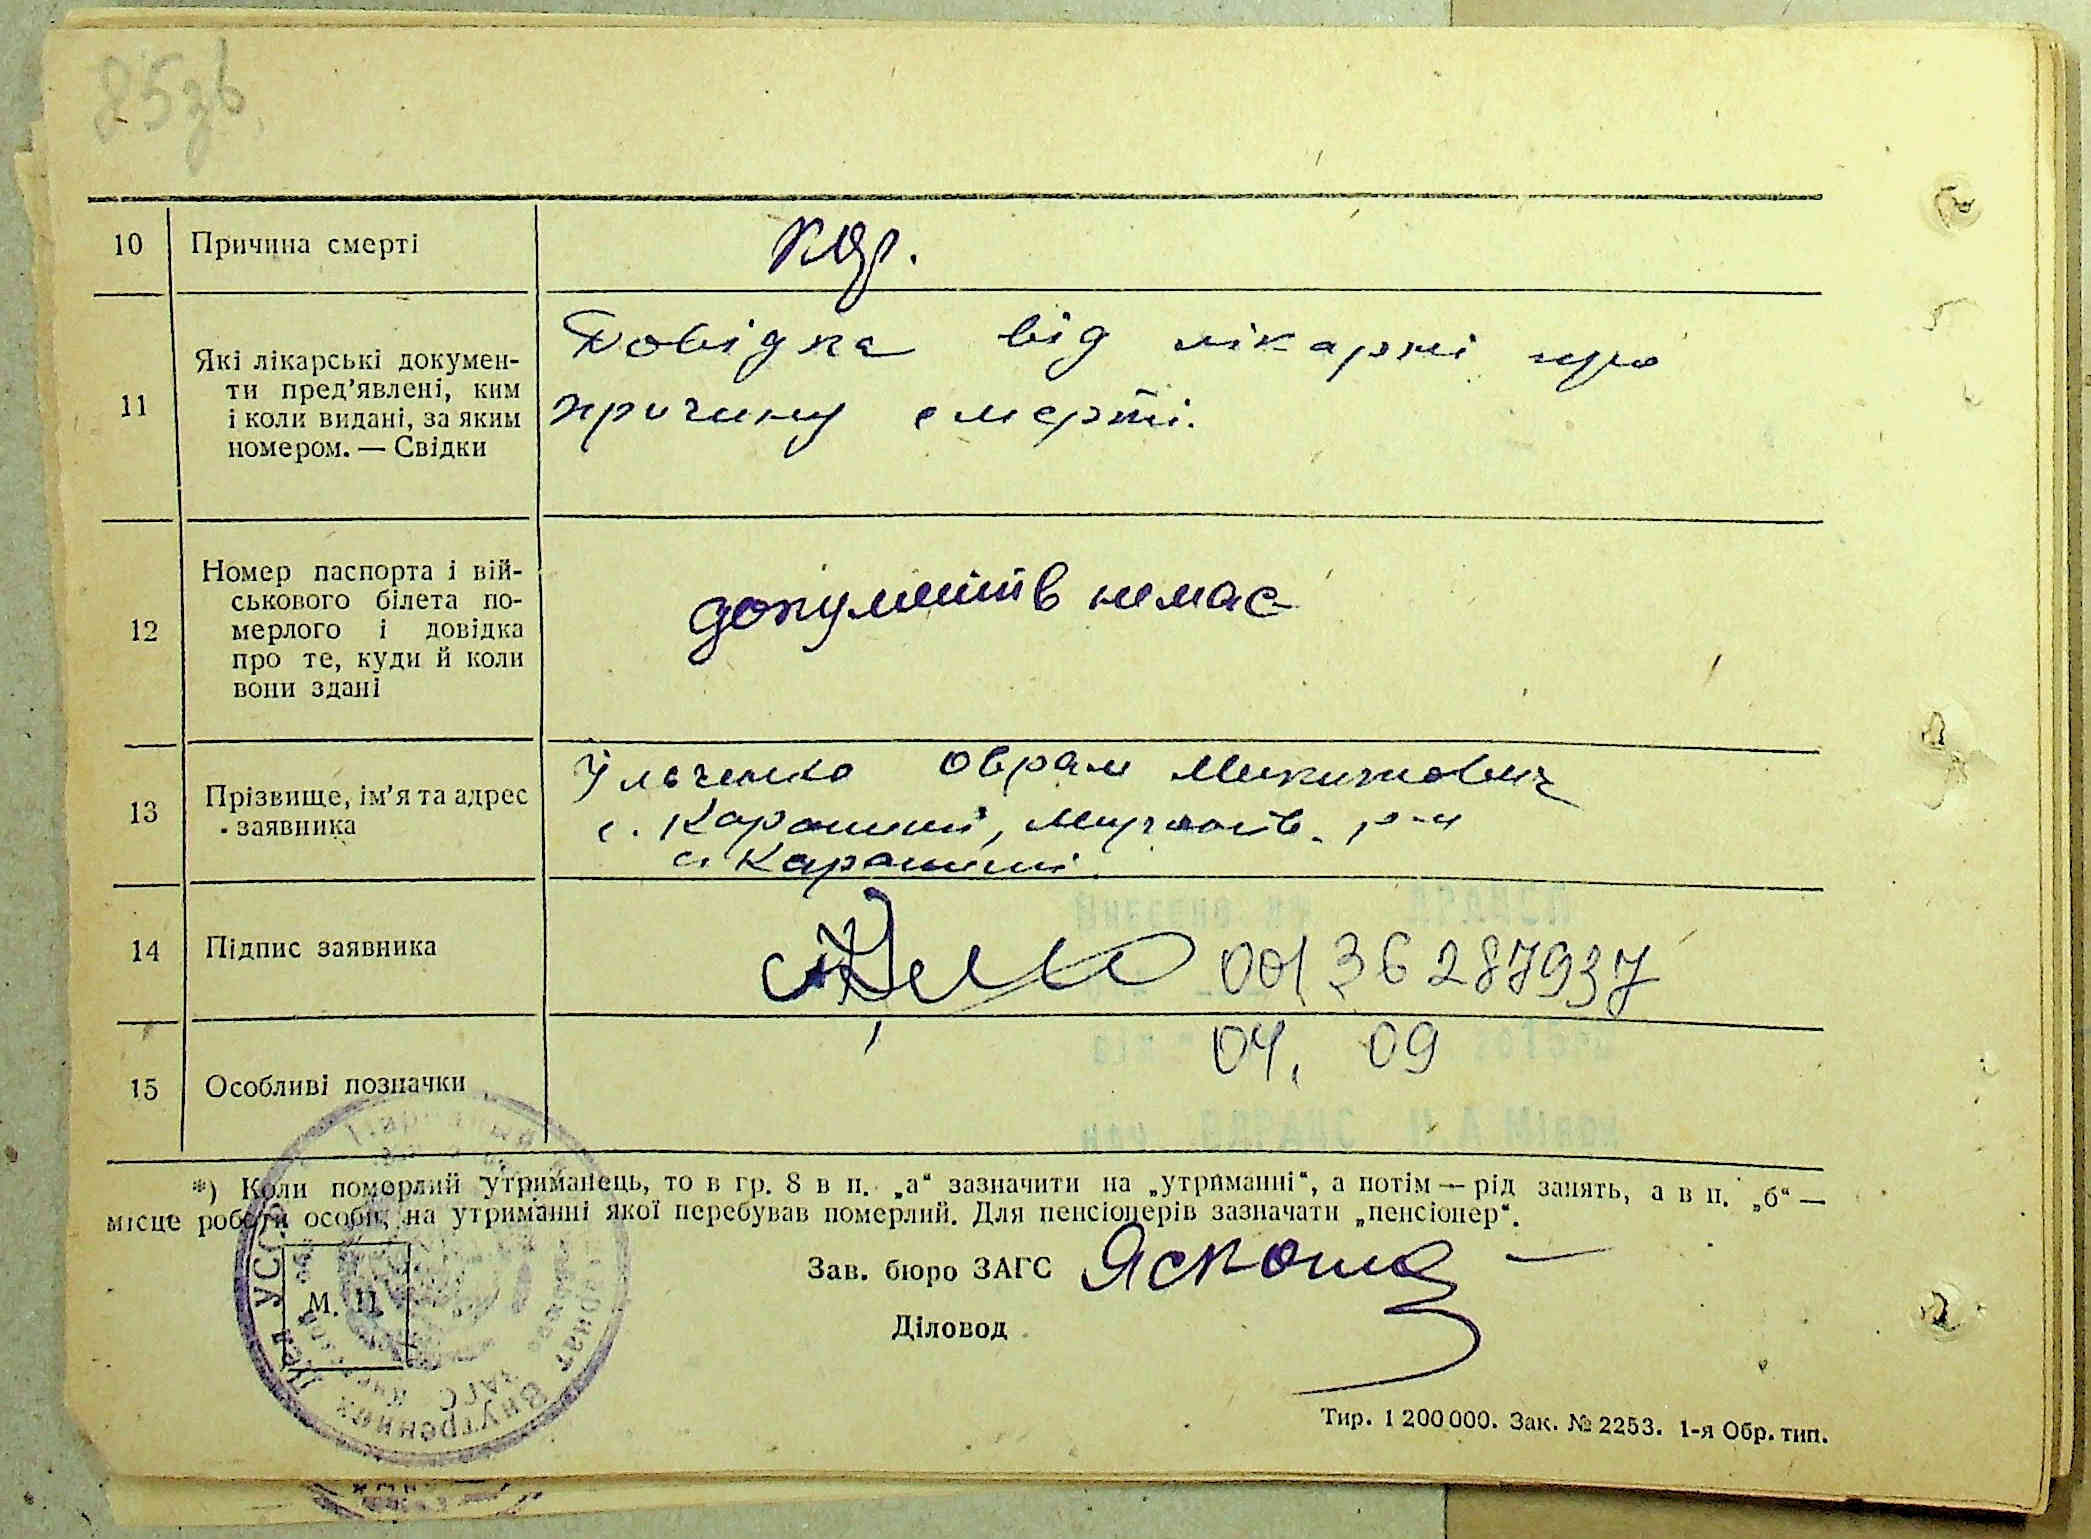 85зв.
10 Причина смерті
кор.
11 Які лікарські докумен-
ти пред'явлені, ким
і коли видані, за яким
номером. — Свідки
Довідка від лікарні про
причину смерті.
12 Номер паспорта і вій-
ськового білета по-
мерлого і довідка
про те, куди й коли
вони здані
документів немає
13 Прізвище, ім'я та адрес
заявника
Ільченко Оврам Микитович
с. Карапиші, р-н
с. Карапиші
14 Підпис заявника
00136287937
15 Особливі позначки
04. 09
*) Коли померлий утриманець, то в гр. 8 в п. „а“ зазначити на „утриманні“, а потім — рід занять, а в п. „б“ —
місце роботи особи, на утриманні якої перебував померлий. Для пенсіонерів зазначати „пенсіонер“.
М. П.
Зав. бюро ЗАГС
Діловод
Тир. 1 200 000. Зак. № 2253. 1-я Обр. тип.